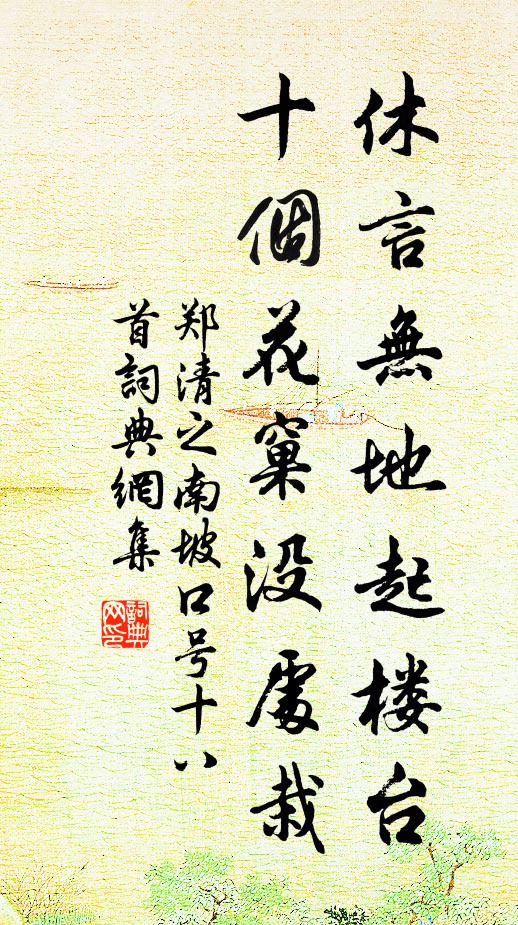 休言無地起楼台
十個花窠没處栽
郑清之南坡口号十八
首詞典網集
詞典
网印